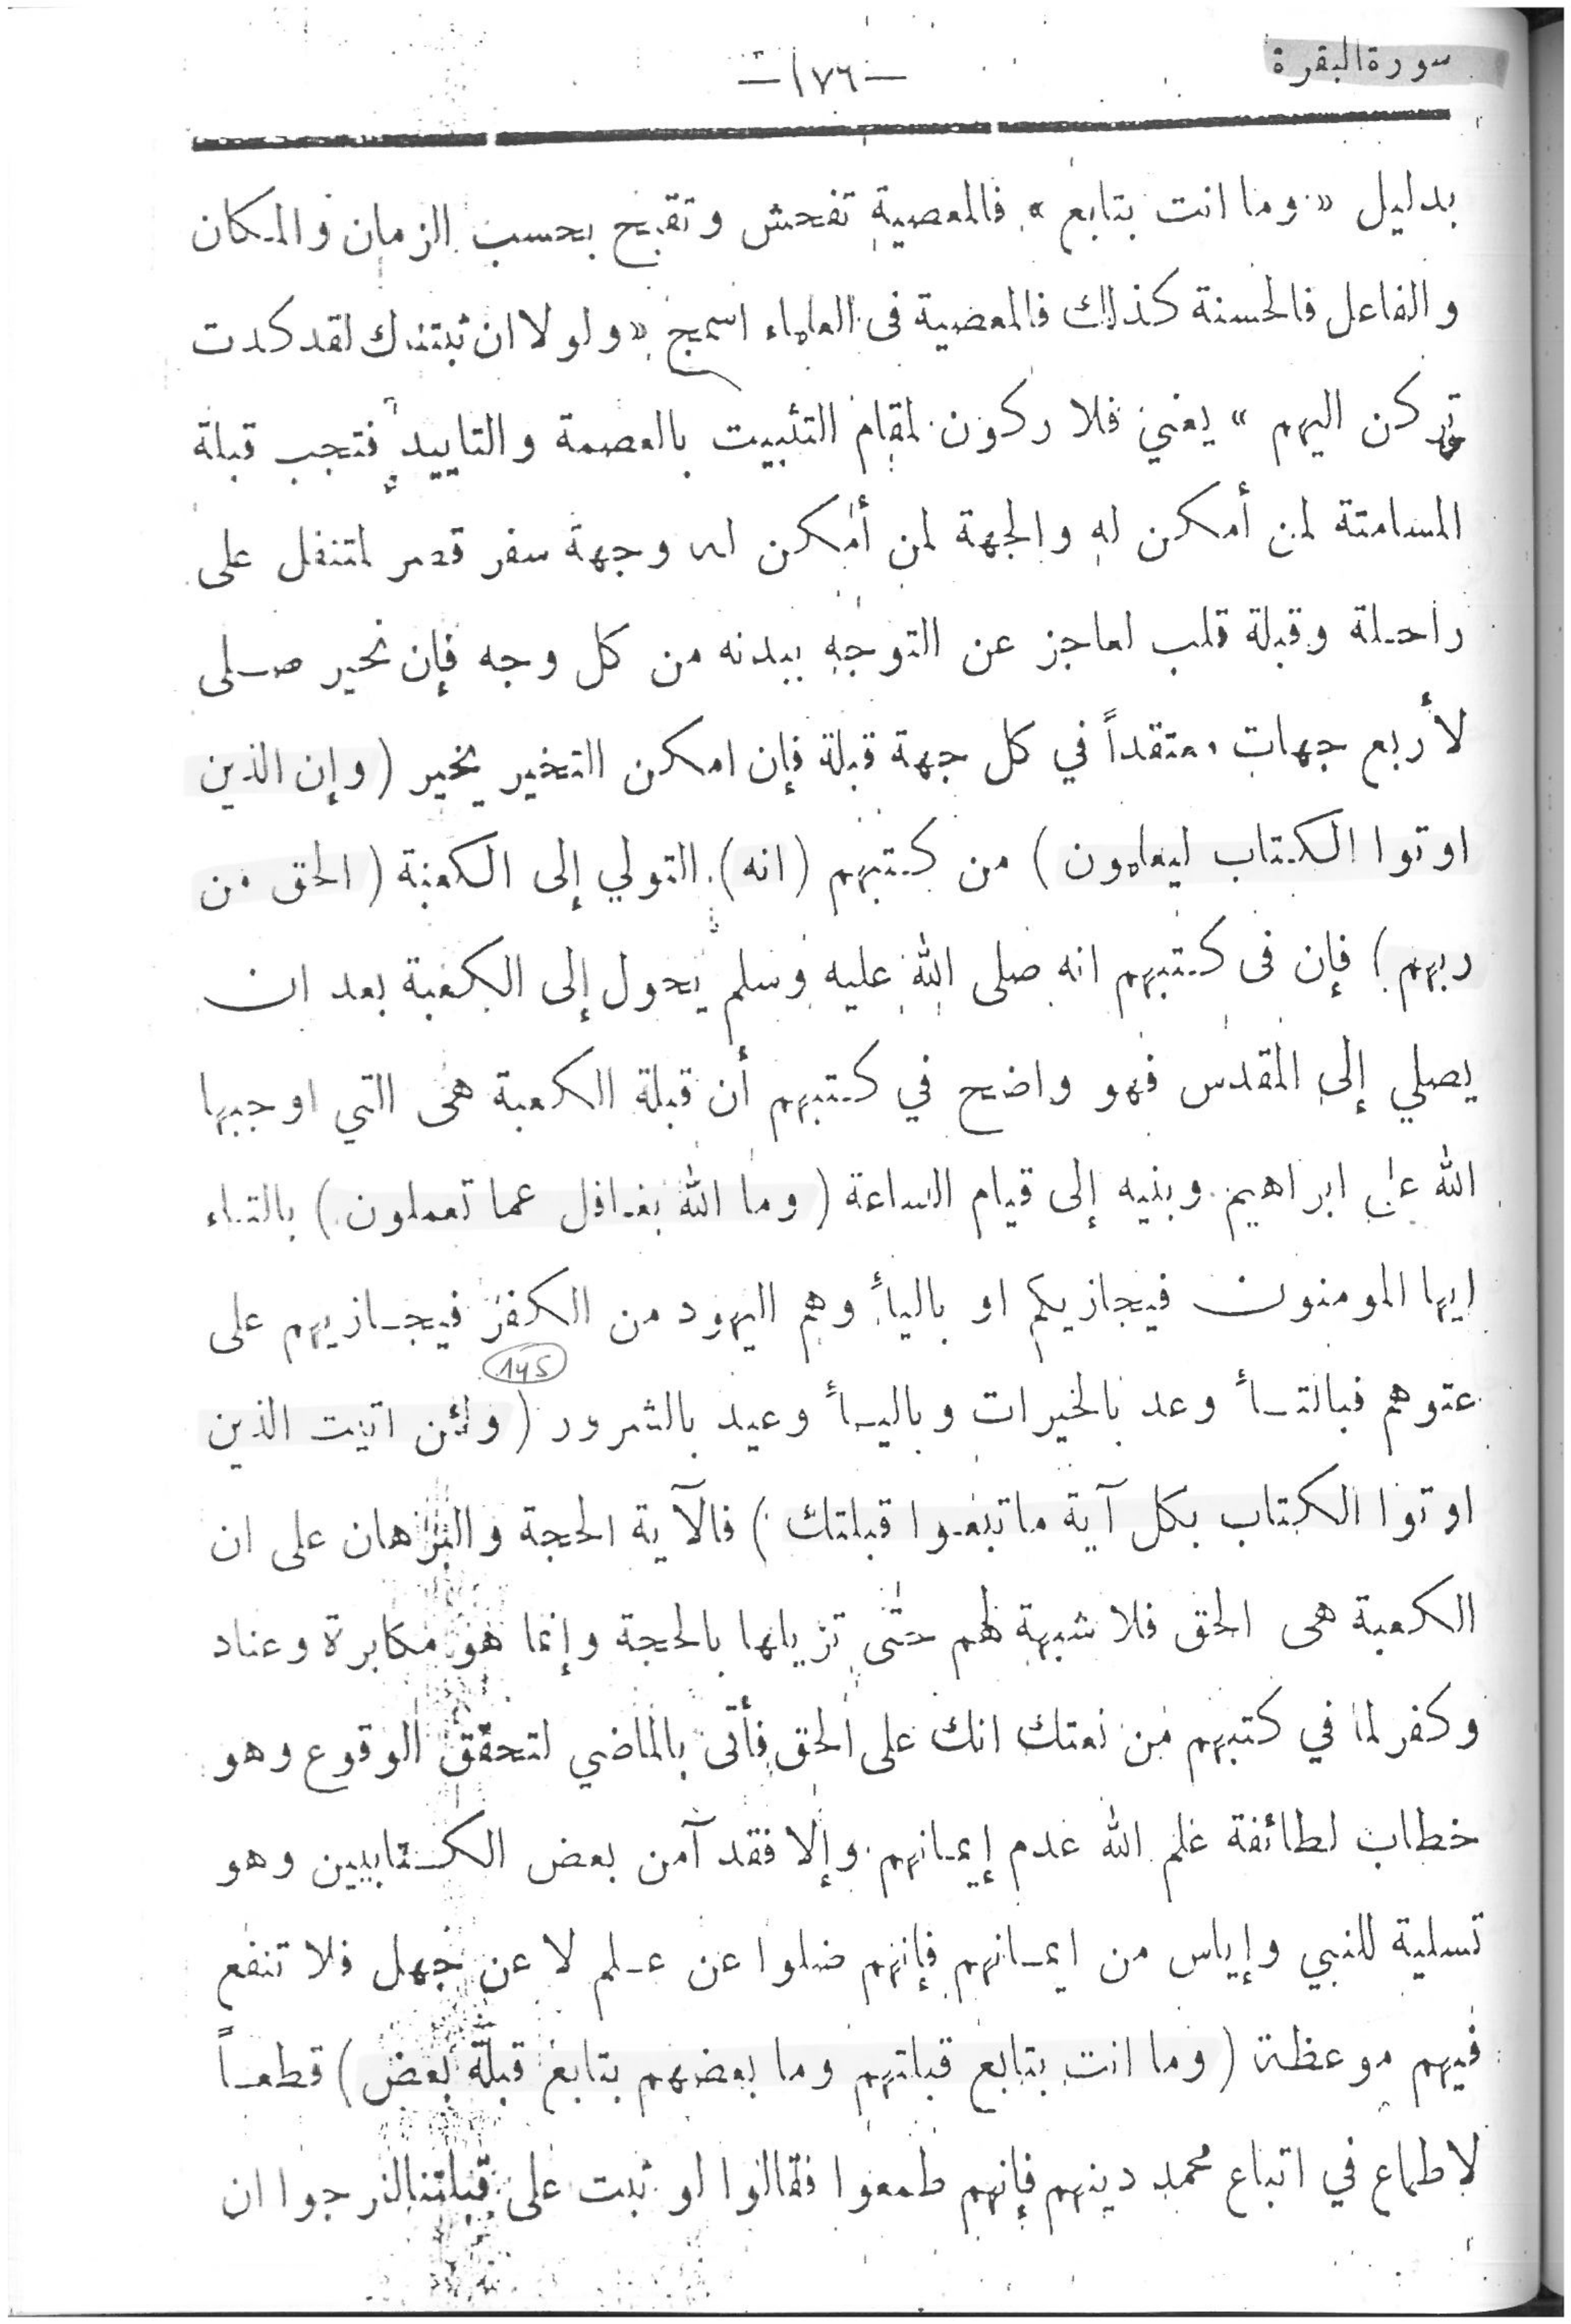 سورة البقرة
— ١٧٦ —
بدليل « وما انت بتابع » فالمعصية تفحش وتقبح بحسب الزمان والمكان
والفاعل فالحسنة كذلك فالمعصية فى العلماء اسمج « ولولا ان ثبتنك لقد كدت
تركن اليهم » يعني فلا ركون لمقام التثبيت بالعصمة والتاييد فتجب قبلة
المسامتة لمن أمكن له والجهة لمن أمكن له وجهة سفر قصر لمتنفل على
راحلة وقبلة قلب لعاجز عن التوجه ببدنه من كل وجه فإن تحير صلى
لأربع جهات معتقداً في كل جهة قبلة فإن امكن التخير يخير ( وإن الذين
اوتوا الكتاب ليعلمون ) من كتبهم ( انه ) التولي إلى الكعبة ( الحق من
ربهم ) فإن فى كتبهم انه صلى الله عليه وسلم يحول إلى الكعبة بعد ان
يصلي إلى المقدس فهو واضح في كتبهم أن قبلة الكعبة هى التي اوجبها
الله على ابراهيم وبنيه إلى قيام الساعة ( وما الله بغافل عما تعملون ) بالتاء
ايها المومنون فيجازيكم او باليأ وهم اليهود من الكفر فيجازيهم على
145
عتوهم فبالتأ وعد بالخيرات وباليأ وعيد بالشرور ( ولئن اتيت الذين
اوتوا الكتاب بكل آية ما تبعوا قبلتك ) فالآية الحجة والبرهان على ان
الكعبة هى الحق فلا شبهة لهم حتى تزيلها بالحجة وإنما هو مكابرة وعناد
وكفر لما في كتبهم من نعتك انك على الحق فأتى بالماضي لتحقق الوقوع وهو
خطاب لطائفة علم الله عدم إيمانهم وإلا فقد آمن بعض الكتابيين وهو
تسلية للنبي وإياس من ايمانهم فإنهم ضلوا عن علم لا عن جهل فلا تنفع
فيهم موعظة ( وما انت بتابع قبلتهم وما بعضهم بتابع قبلة بعض ) قطعاً
لاطماع في اتباع محمد دينهم فإنهم طمعوا فقالوا لو ثبت على قبلتنا لنرجوا ان